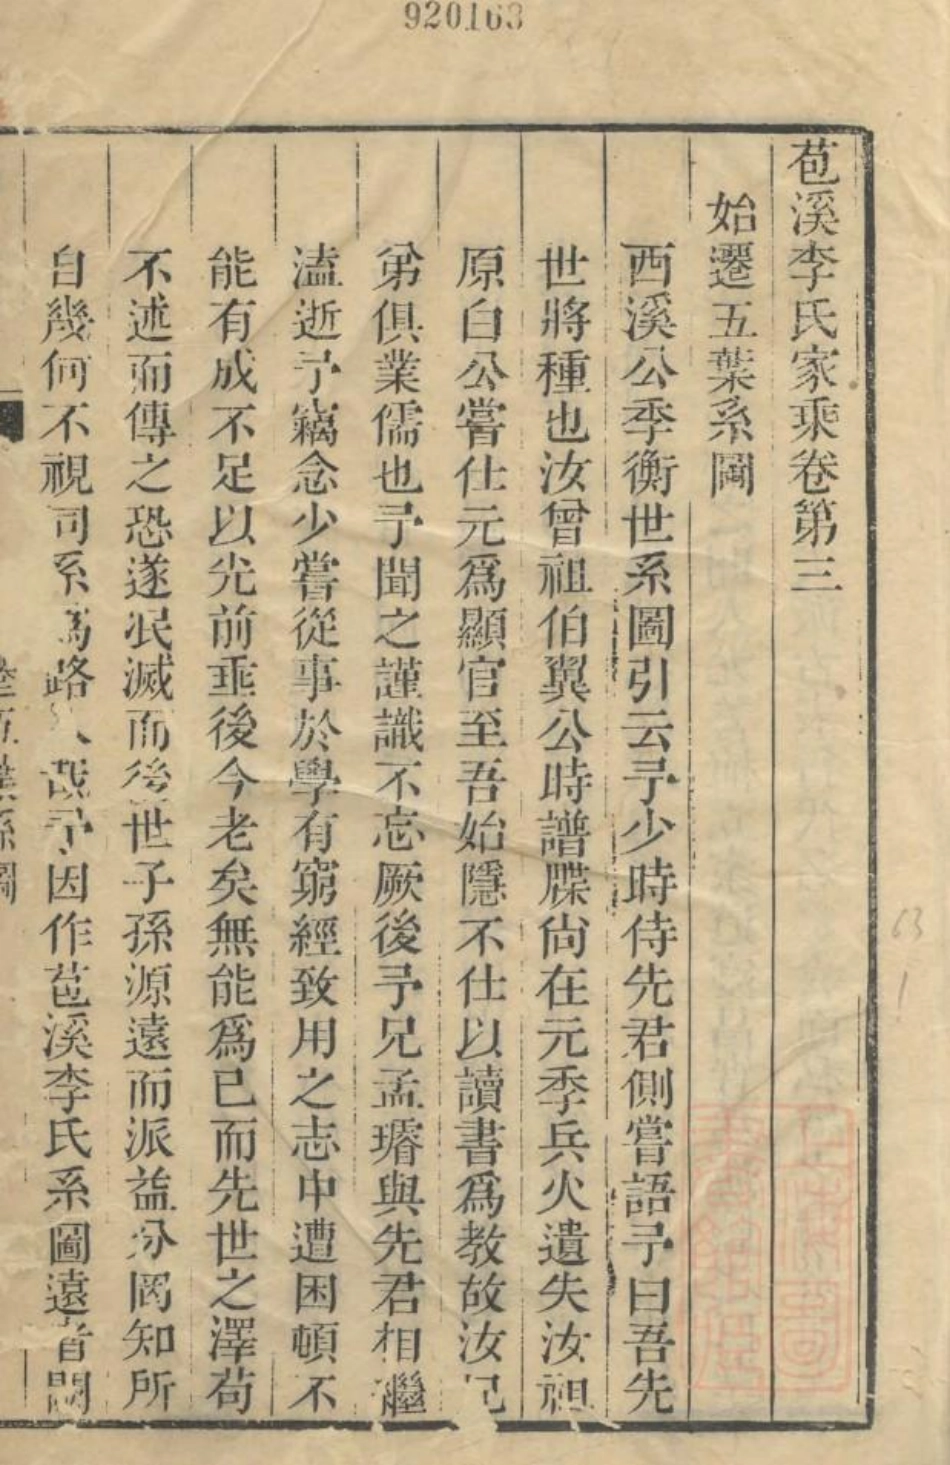 920163
苞溪李氏家乘卷第三
始遷五葉系圖
西溪公季衡世系圖引云予少時侍先君側嘗語予曰吾先
世將種也汝曾祖伯翼公時譜牒尙在元季兵火遺失汝祖
原白公嘗仕元爲顯官至吾始隱不仕以讀書爲教故汝兄
弟俱業儒也予聞之謹識不忘厥後予兄孟璿與先君相繼
溘逝予竊念少嘗從事於學有窮經致用之志中遭困頓不
能有成不足以光前垂後今老矣無能爲已而先世之澤苟
不述而傳之恐遂泯滅而後世子孫源遠而派益分罔知所
自幾何不視同系爲路人哉予因作苞溪李氏系圖遠者闕
五葉系圖
63